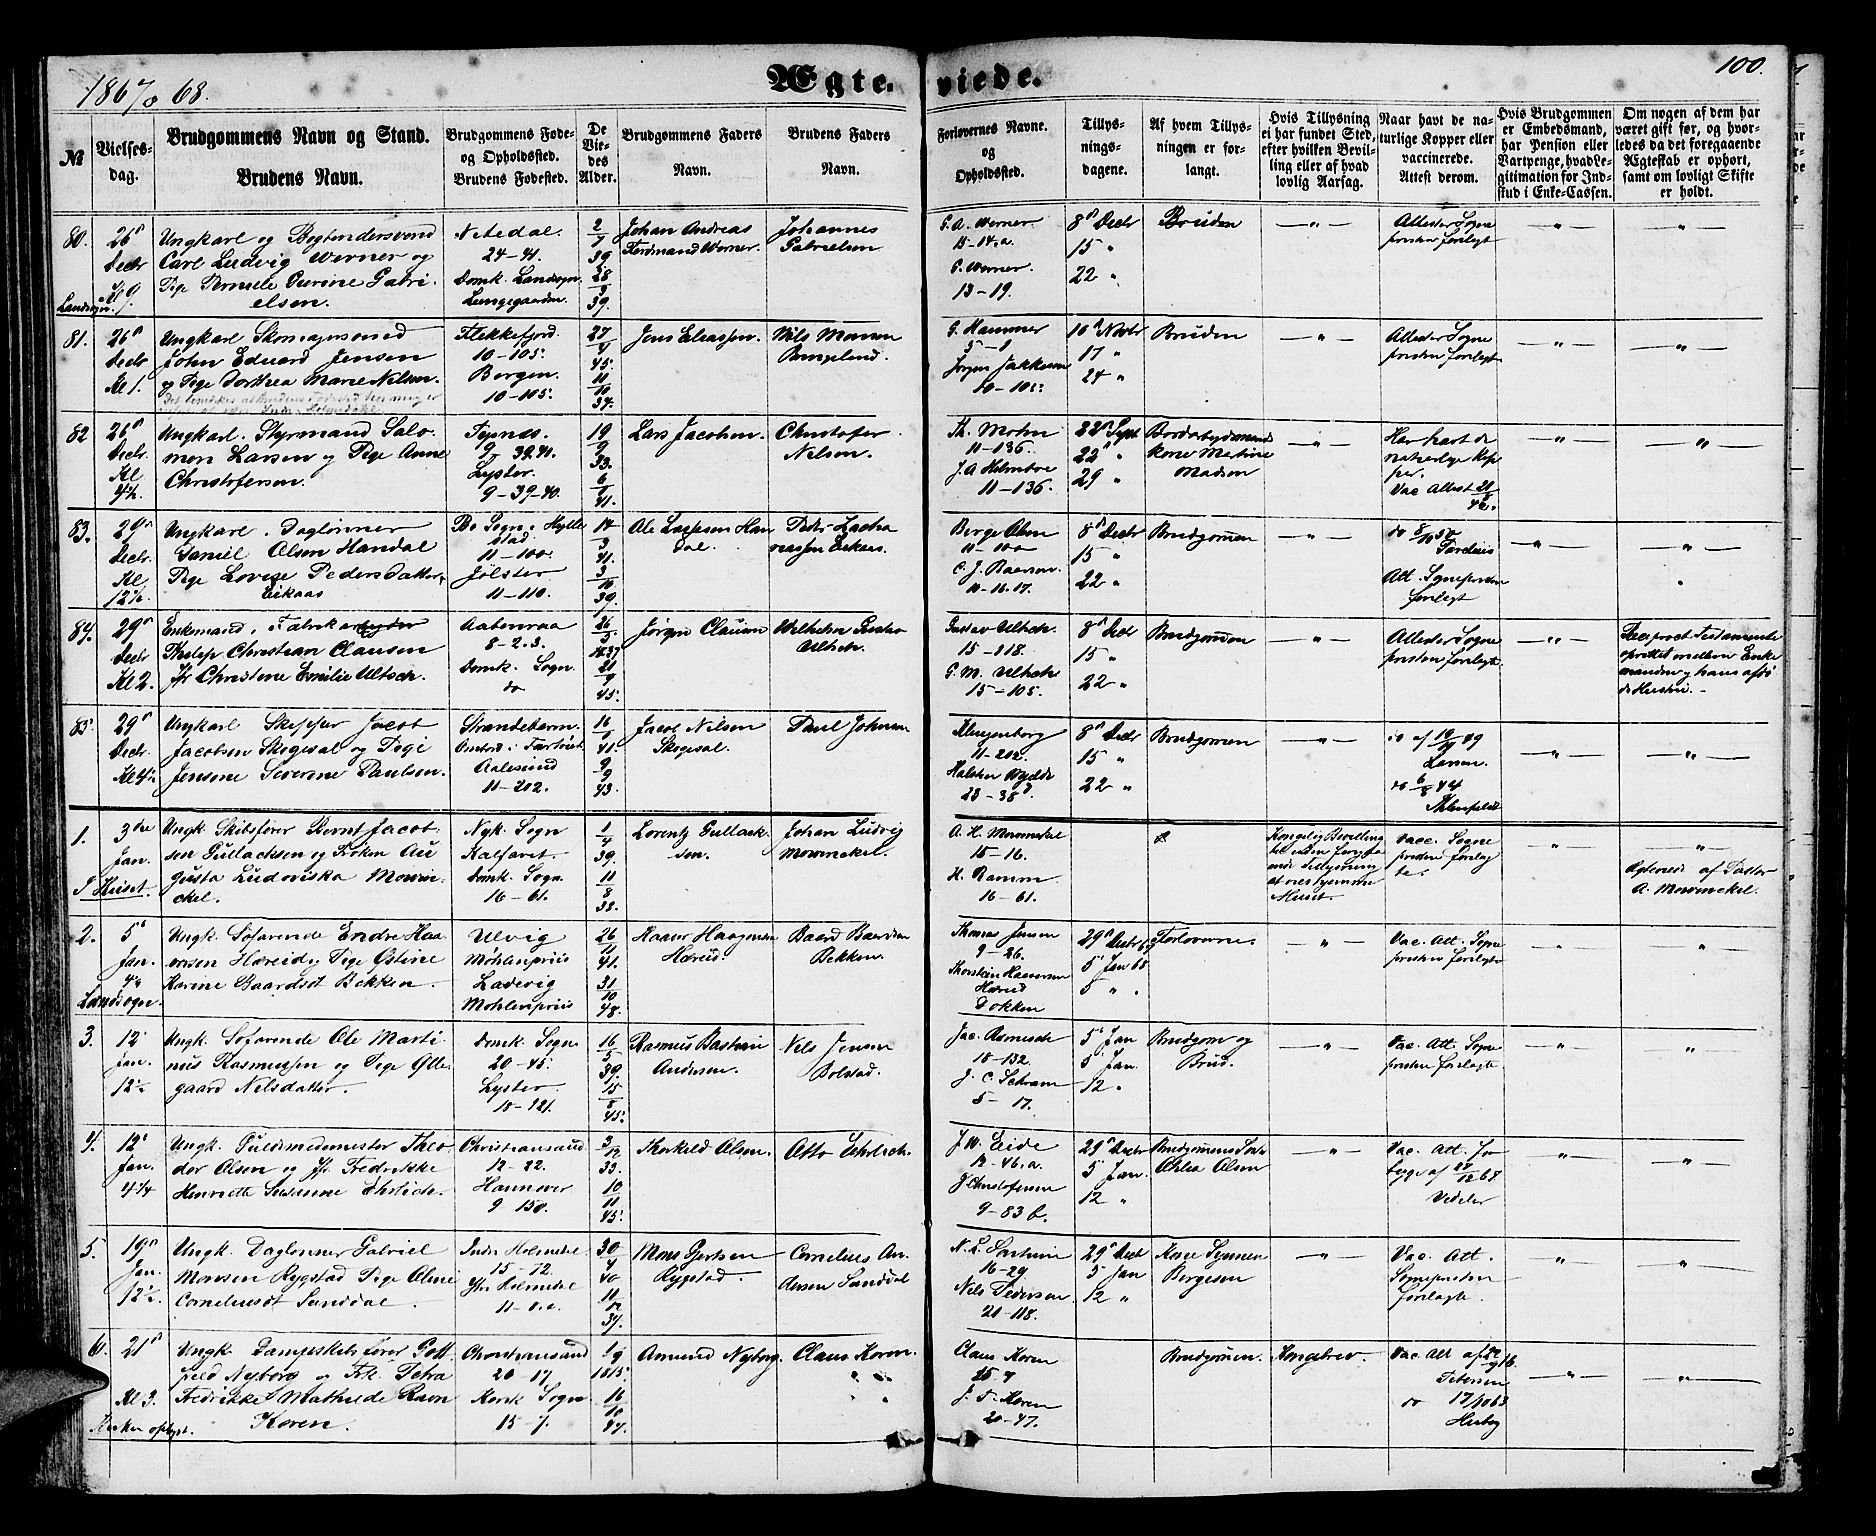 1867 & 68.
Ægte-
viede.
100.
№
Vielses-
dag.
Brudgommens Navn og Stand.
Brudens Navn.
Brudgommens Føde-
og Opholdssted.
Brudens Fødested.
De
Vie-
des
Alder.
Brudgommens Faders
Navn.
Brudens Faders
Navn.
Forlovernes Navne.
og
Opholdssted.
Tillys-
nings-
dagene.
Af hvem Tillys-
ningen er for-
langt.
Hvis Tillysning
ei har fundet Sted,
efter hvilken Bevil-
ling eller af hvad
lovlig Aarsag.
Naar havt de na-
turlige Kopper eller
vaccinerede.
Attest derom.
Hvis Brudgommen
er Embedsmand,
har Pension eller
Vartpenge, hvad Le-
gitimation for Ind-
skud i Enke-Cassen.
Om nogen af dem har
været gift før, og hvor-
ledes da det foregaaende
Ægteskab er ophørt,
samt om lovligt Skifte
er holdt.
80.
26
Decbr
Kl 9.
Landsogn.
Ungkarl og Bogbindersvend
Carl Ludvig Werner og
Pige Pernille Gurine Gabri-
elsen.
Nitedal.
24-41.
Domk. Landsogn
Lungegaarden.
2/7 39
28/3 39.
Johan Andreas
Ferdinand Werner.
Johannes
Gabrielsen
Werner.
15-14.a.
Werner.
13-19.
8 Decbr
15 "
22 "
Bruden
"
Attester Sogne
præsten forelagt
"
"
81.
26
Decbr
Kl 1.
Ungkarl Skomagersvend
John Eduard Jensen
og Pige Dorthea Marie Nilsen.
Flekkefjord.
10-105.
Bergen.
10-105.
27/4 45.
11/10 34.
Jens Eliassen.
Nils Monsen
G. Hammer
5-1
Jørgen
10-105
10 Novbr
17 "
24 "
Bruden
"
Attester Sogne
præsten forelagt
"
"
82
26
Decbr.
Kl
4½.
Ungkarl. Styrmand Salo-
mon Larsen og Pige Anne
Christofersen.
9-39.40.
Lyster.
9-39-40.
19/9 33.
6/6 41.
Lars Jacobsen.
Christofer
Nilsen.
Th. Mohn
11-136.
J. A.
11-136
22 Sept
22 "
29 "
kone Martine
Madsen
"
Har havt de
naturlige Kop-
per
Vac Attest
"
"
83.
29
Decbr.
Kl.
12½.
Ungkarl. Daglønner
Daniel Olsen Handal
Pige Lovise Pedersdatter
Eikaas
Bø Sogn i Hylle-
stad
11-100.
Jølster
11-110.
14/3 41.
3/10 39.
Ole Larssen Han-
dal.
Peder Zacha-
riassen Eikaas.
Berge Olsen
11-100
11-16.17.
8 Decbr
15 "
22 "
Brudgommen
"
Att. Sognepræsten
forelagt
"
"
84.
29
Decbr
Kl 2.
Enkemand. Fabrikarbeider
Philip Christian Clausen
Jfr Christine Emilie Ultsch.
Aabenraa
8-2.3.
Domk. Sogn.
do
26/5 1837
21/9 45.
Jørgen Clausen
Wilhelm
Ultsch.
Gustav Ultsch.
15-118.
G. M. Ultsch
15-105.
8 Decbr
15 "
22 "
Brudgommen
"
Attester Sogne
præsten forelagt.
"
Reciproct Testamente
oprettet mellem Enke-
manden og hans afdø-
de Hustru. -
85.
29
Decbr.
Kl 4½
Ungkarl Skipper Jacob
Jacobsen Skogesal og Pige
Jensine Severine Paulsen.
Strandebarm.
Aalesund
11-202.
16/ 41.
9/9 43.
Jacob Nilsen
Skogesal.
Paul Johnsen
Klingenberg
11-202.
23-35
8 Decbr
15 "
22 "
Brudgommen
"
"
"
1.
3die
Jan.
I Huset.
Ungk. Skibsfører Bernt Jacob-
sen Gullachsen og Frøken Au-
gusta Ludoviska Mowin-
ckel.
Nyk. Sogn
Kalfaret.
Domk. Sogn.
16-61.
1/4 39.
11/8 38.
Lorentz Gullach-
sen.
Johan Ludvig
Mowinckel.
A. H. Mowinckel
15-16.
H. Ramm.
16-61.
Kongelig Bevilling
til uden foregaa-
ende Tillysning
at vies hjemme
i Huset.
Vacc. Sogne
præsten forelag-
te.
"
"
Ægteviet af Pastor
A. Mowinckel.
2.
5
Jan.
4½
Landsogn.
Ungk. Søfarende Endre Haa-
versen Hæreid og Pige Østine
Karine Baardsdt Bekken.
Ulvig
Møhlenpriis
Ladevig
Møhlenpriis
26/ 41.
31/10 48.
Haaver Haagensen
Hæreid.
Baard Baardsen
Bekken.
Thomas Jensen
9-26.
Thorstein Haaversen
Hæreid
Dokken
29 Decbr 67
5 Jan 68
5 " "
Forloverne.
"
Vac. Att. Sogne
præsten forelagte
"
"
3.
12
Jan.
12½
Ungk. Søfarende Ole Marti-
nus Rasmussen og Pige Olle-
gaard Nilsdatter.
Domk. Sogn
20-45.
Lyster.
15-121.
16/5 39.
15/8 45.
Rasmus Bastian
Andersen.
Nils Jensen
Bolstad.
15-132.
J. C. Schram
5-17.
5 Jan
5 Jan.
12 "
Brudgom og
Brud.
"
Vac. Att. Sogne
præsten forelagte
"
"
4.
12
Jan.
4¼
Ungk. Guldsmedemester Theo-
dor Olsen og Jfr. Fredrikke
Henriette Susanne Ehrlich.
Christiansand
12-22.
Hannover
9-150.
3/12 33.
10/11 45.
Thorkild Olsen.
Otto Ehrlich.
J. W. Eide
12-46.a.
J Christofersen
9-83 b.
29 Decbr
5 Jan.
12 "
Olsen
"
Vac. Att. Fore-
Vedeler
"
"
5.
19
Jan.
12½.
Ungk. Daglønner Gabriel
Monsen Rygstad Pige Oline
Corneliusdt Sanddal.
Indr Holmedal
15-72.
Ytr Holmedal
11-8.a.
30/4 40
11/12 37.
Mons Gjertsen
Rygstad.
Cornelius An-
dersen Sanddal
16-29
Nils Pedersen
20-118.
29 Decbr
5 Jan
12 "
Kone Synneve
Børgesen
"
Vac. Att.
Sognepræsten
forelagte.
"
"
6.
21
Kl 3.
Kirken oplyst.
Ungk. Dampskibsfører Gott-
fried Nyborg og Frk. Petra
Fredrikke Mathilde Ravn
Koren.
Christiansand
20-17
Korsk. Sogn
15-7.
1/9 1815.
16/10 47.
Amund Nyborg.
Claus Koren.
" "
Claus Koren
25-7
Koren
20-47.
Brudgommen.
Kongebrev.
Vac Att af
Petersen
do 17/10 63
"
"